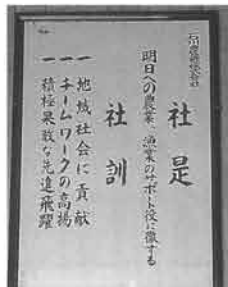 社是
明日への農業、漁業のサポート役に徹する
社訓
一 地域社会に貢献
一 チームワークの高揚
一 積極果敢な先進飛躍